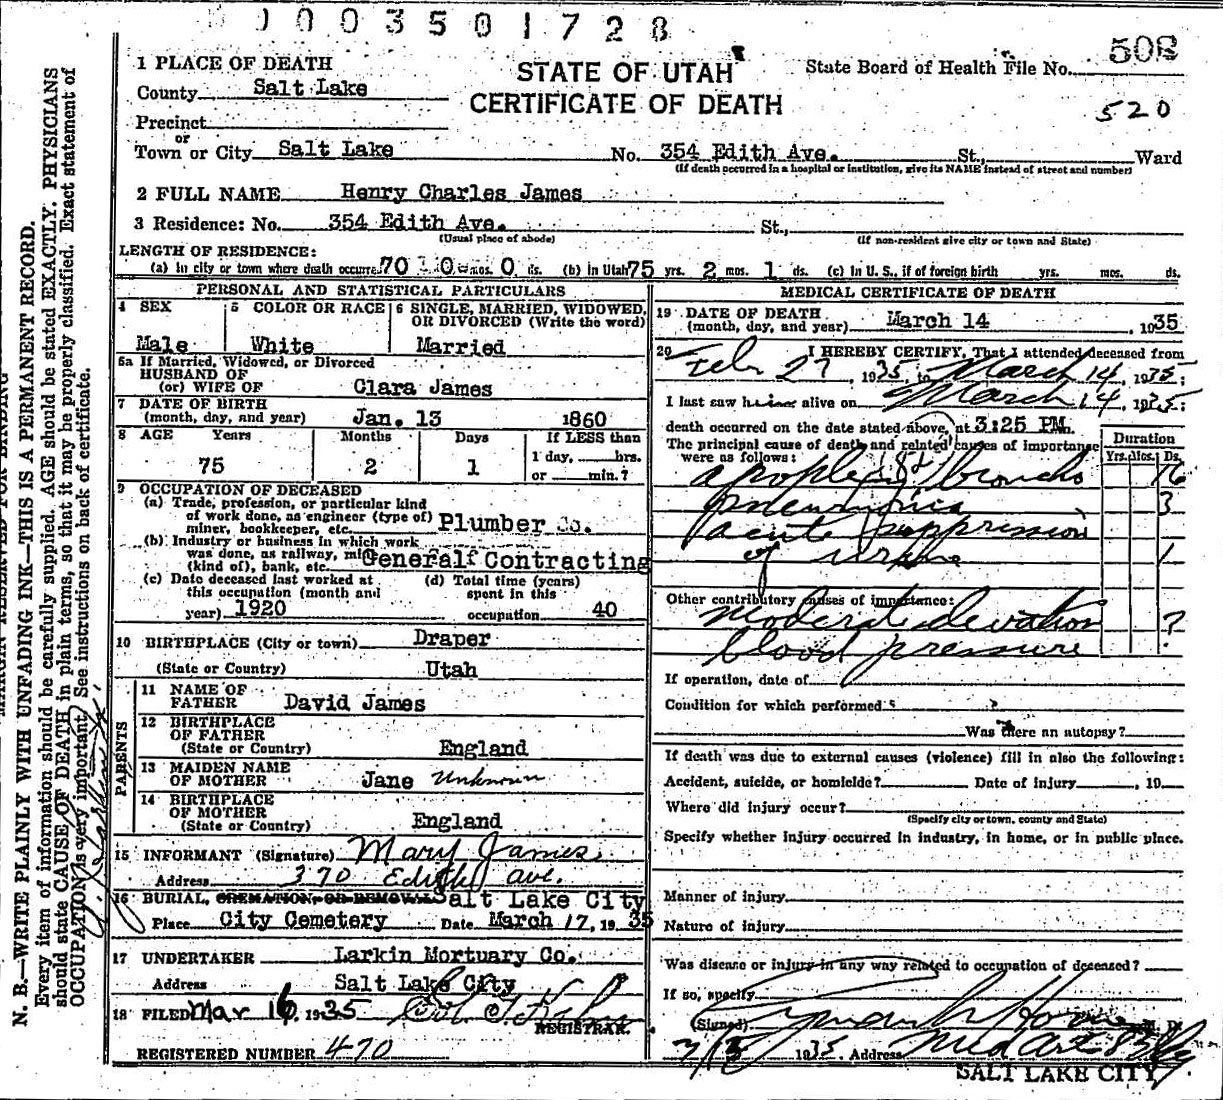 0003501728
1 PLACE OF DEATH
STATE OF UTAH
CERTIFICATE OF DEATH
State Board of Health File No. 502
520
County Salt Lake
Precinct
or
Town or City Salt Lake No. 354 Edith Ave. St., Ward
(If death occurred in a hospital or institution, give its NAME instead of street and number)
2 FULL NAME Henry Charles James
3 Residence: No. 354 Edith Ave. St.,
(Usual place of abode) (If non-resident give city or town and State)
LENGTH OF RESIDENCE:
(a) In city or town where death occurred 70 0 mos. 0 ds. (b) in Utah 75 yrs. 2 mos. 1 ds. (c) In U. S., if of foreign birth yrs. mos. ds.
PERSONAL AND STATISTICAL PARTICULARS
4 SEX
Male
5 COLOR OR RACE
White
6 SINGLE, MARRIED, WIDOWED,
OR DIVORCED (Write the word)
Married
6a If Married, Widowed, or Divorced
HUSBAND OF
(or) WIFE OF Clara James
7 DATE OF BIRTH
(month, day, and year) Jan. 13 1860
8 AGE Years Months Days If LESS than
1 day, hrs.
75 2 1 or min.?
9 OCCUPATION OF DECEASED
(a) Trade, profession, or particular kind
of work done, as engineer (type of)
miner, bookkeeper, etc. Plumber Co.
(b) Industry or business in which work
was done, as railway, mine
(kind of), bank, etc. General Contracting
(c) Date deceased last worked at
this occupation (month and
year) 1920
(d) Total time (years)
spent in this
occupation 40
10 BIRTHPLACE (City or town) Draper
(State or Country) Utah
PARENTS
11 NAME OF
FATHER David James
12 BIRTHPLACE
OF FATHER
(State or Country) England
13 MAIDEN NAME
OF MOTHER Jane Unknown
14 BIRTHPLACE
OF MOTHER
(State or Country) England
15 INFORMANT (Signature) Mary James
Address 370 Edith Ave.
16 BURIAL, CREMATION, OR REMOVAL Salt Lake City
Place City Cemetery Date March 17, 1935
17 UNDERTAKER Larkin Mortuary Co.
Address Salt Lake City
18 FILED Mar 16, 1935
REGISTRAR.
REGISTERED NUMBER 470
MEDICAL CERTIFICATE OF DEATH
19 DATE OF DEATH
(month, day, and year) March 14, 1935
20 I HEREBY CERTIFY, That I attended deceased from
Feb 27, 1935, to March 14, 1935;
I last saw him alive on March 14, 1935;
death occurred on the date stated above, at 3:25 PM.
The principal cause of death and related causes of importance
were as follows:
Duration
Yrs. Mos. Ds.
apoplexy broncho 16
pneumonia 3
acute suppression
of urine 1
Other contributory causes of importance:
moderate elevation ?
blood pressure
If operation, date of
Condition for which performed
Was there an autopsy?
If death was due to external causes (violence) fill in also the following:
Accident, suicide, or homicide? Date of injury , 19
Where did injury occur?
(Specify city or town, county and State)
Specify whether injury occurred in industry, in home, or in public place.
Manner of injury
Nature of injury
Was disease or injury in any way related to occupation of deceased?
If so, specify
(Signed) M. D.
1935, Address Med Arts Bldg
SALT LAKE CITY
N. B.—WRITE PLAINLY WITH UNFADING INK—THIS IS A PERMANENT RECORD.
Every item of information should be carefully supplied. AGE should be stated EXACTLY. PHYSICIANS
should state CAUSE OF DEATH in plain terms, so that it may be properly classified. Exact statement of
OCCUPATION is very important. See instructions on back of certificate.